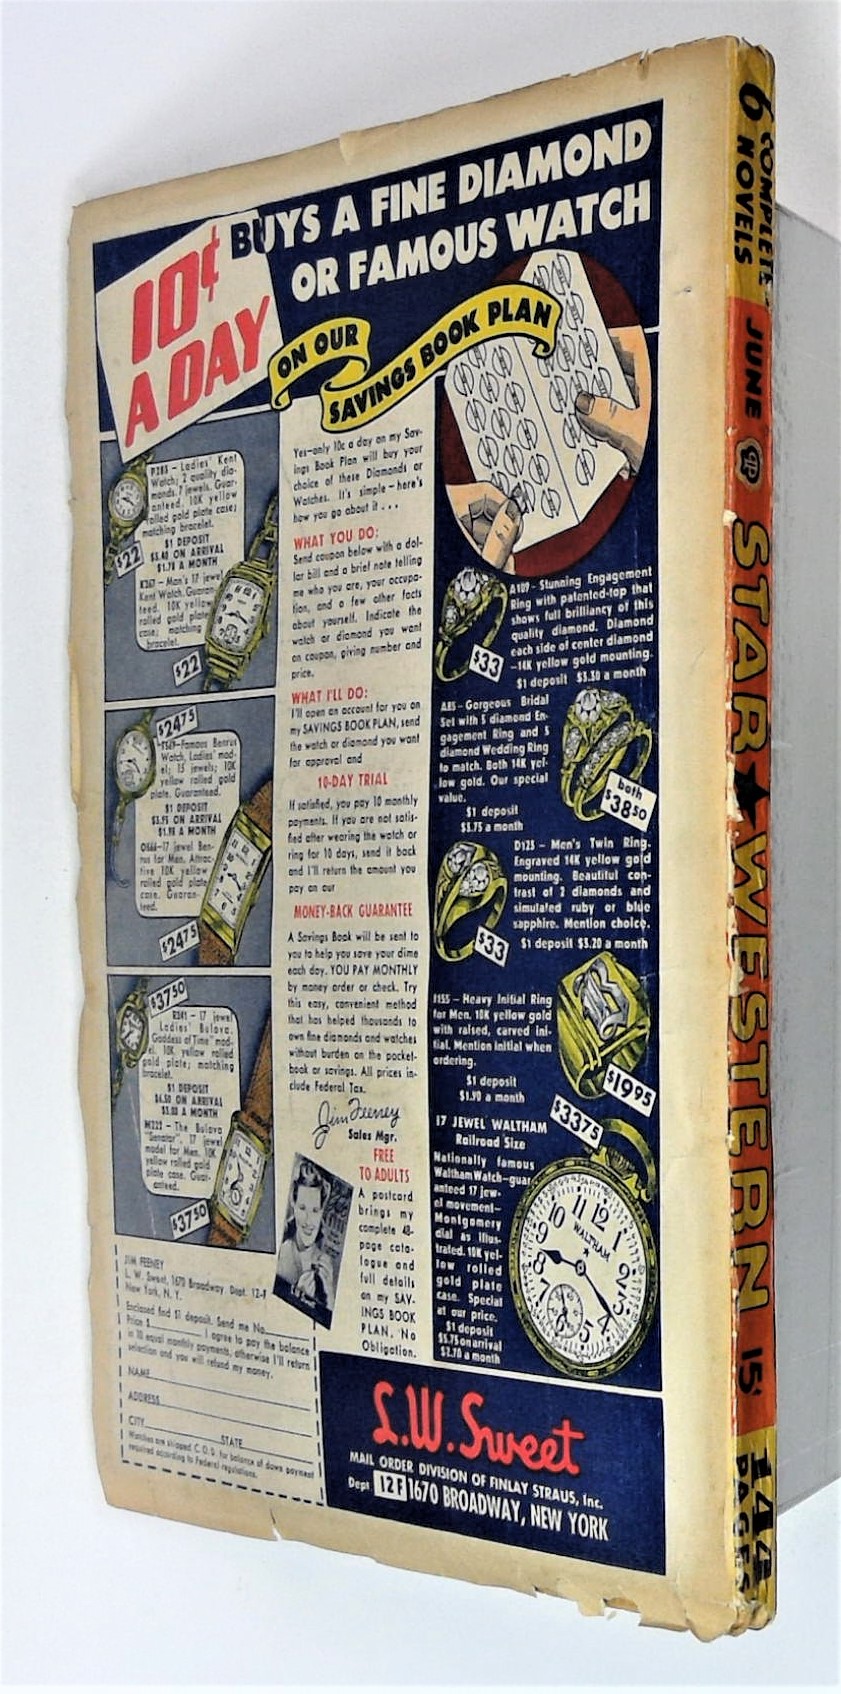 10¢
A DAY
BUYS A FINE DIAMOND
OR FAMOUS WATCH
ON OUR
SAVINGS BOOK PLAN
P285 – Ladies' Kent
Watch; 2 quality dia-
monds. 7 jewels. Guar-
anteed. 10K yellow
rolled gold plate case;
matching bracelet.
$1 DEPOSIT
$3.40 ON ARRIVAL
$1.78 A MONTH
$22
K267 – Man's 17 jewel
Kent Watch. Guaran-
teed. 10K yellow
rolled gold plate
case; matching
bracelet.
$22
$2475
Famous Benrus
Watch, Ladies' mod-
el; 15 jewels; 10K
yellow rolled gold
plate. Guaranteed.
$1 DEPOSIT
$3.95 ON ARRIVAL
$1.98 A MONTH
O566–17 jewel Ben-
rus for Men. Attrac-
tive 10K yellow
rolled gold plate
case. Guaran-
teed.
$2475
$3750
R241 – 17 jewel
Ladies' Bulova.
"Goddess of Time" mod-
el. 10K yellow rolled
gold plate; matching
bracelet.
$1 DEPOSIT
$6.50 ON ARRIVAL
$3.00 A MONTH
M222 – The Bulova
"Senator". 17 jewel
model for Men. 10K
yellow rolled gold
plate case. Guar-
anteed.
$3750
Yes–only 10c a day on my Sav-
ings Book Plan will buy your
choice of these Diamonds or
Watches. It's simple–here's
how you go about it . . .
WHAT YOU DO:
Send coupon below with a dol-
lar bill and a brief note telling
me who you are, your occupa-
tion, and a few other facts
about yourself. Indicate the
watch or diamond you want
on coupon, giving number and
price.
WHAT I'LL DO:
I'll open an account for you on
my SAVINGS BOOK PLAN, send
the watch or diamond you want
for approval and
10-DAY TRIAL
If satisfied, you pay 10 monthly
payments. If you are not satis-
fied after wearing the watch or
ring for 10 days, send it back
and I'll return the amount you
pay on our
MONEY-BACK GUARANTEE
A Savings Book will be sent to
you to help you save your dime
each day. YOU PAY MONTHLY
by money order or check. Try
this easy, convenient method
that has helped thousands to
own fine diamonds and watches
without burden on the pocket-
book or savings. All prices in-
clude Federal Tax.
Jim Feeney
Sales Mgr.
FREE
TO ADULTS
A postcard
brings my
complete 48-
page cata-
logue and
full details
on my SAV-
INGS BOOK
PLAN. No
Obligation.
A109 – Stunning Engagement
Ring with patented-top that
shows full brilliancy of this
quality diamond. Diamond
each side of center diamond
–14K yellow gold mounting.
$1 deposit $3.30 a month
$33
A85 – Gorgeous Bridal
Set with 5 diamond En-
gagement Ring and 5
diamond Wedding Ring
to match. Both 14K yel-
low gold. Our special
value.
$1 deposit
$3.75 a month
both
$3850
D125 – Men's Twin Ring.
Engraved 14K yellow gold
mounting. Beautiful con-
trast of 2 diamonds and
simulated ruby or blue
sapphire. Mention choice.
$1 deposit $3.20 a month
$33
J155 – Heavy Initial Ring
for Men. 10K yellow gold
with raised, carved ini-
tial. Mention initial when
ordering.
$1 deposit
$1.90 a month
$1995
$3375
17 JEWEL WALTHAM
Railroad Size
Nationally famous
Waltham Watch–guar-
anteed 17 jew-
el movement–
Montgomery
dial as illus-
trated. 10K yel-
low rolled
gold plate
case. Special
at our price.
$1 deposit
$5.75 on arrival
$2.70 a month
WALTHAM
JIM FEENEY
L. W. Sweet, 1670 Broadway. Dept. 12-F
New York, N. Y.
Enclosed find $1 deposit. Send me No.
Price $ I agree to pay the balance
in 10 equal monthly payments, otherwise I'll return
selection and you will refund my money.
NAME
ADDRESS
CITY
STATE
Watches are shipped C.O.D. for balance of down payment
required according to Federal regulations.
L.W. Sweet
MAIL ORDER DIVISION OF FINLAY STRAUS, Inc.
Dept 12F 1670 BROADWAY, NEW YORK
6 COMPLETE
NOVELS
JUNE
STAR ★ WESTERN
15¢
144
PAGES